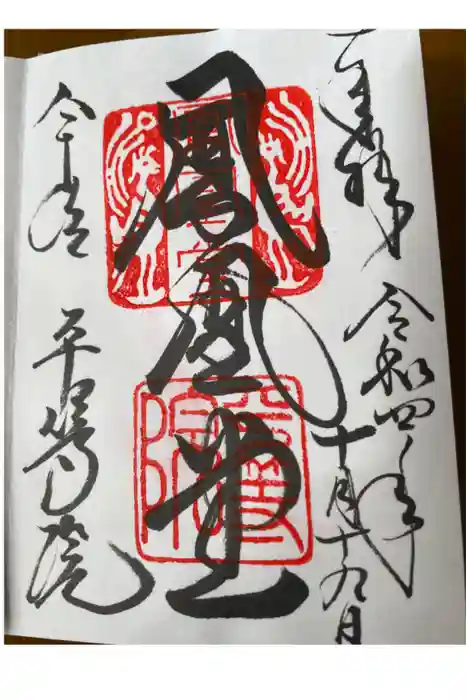 奉拝 令和四年
十月十九日
鳳凰堂
平等院